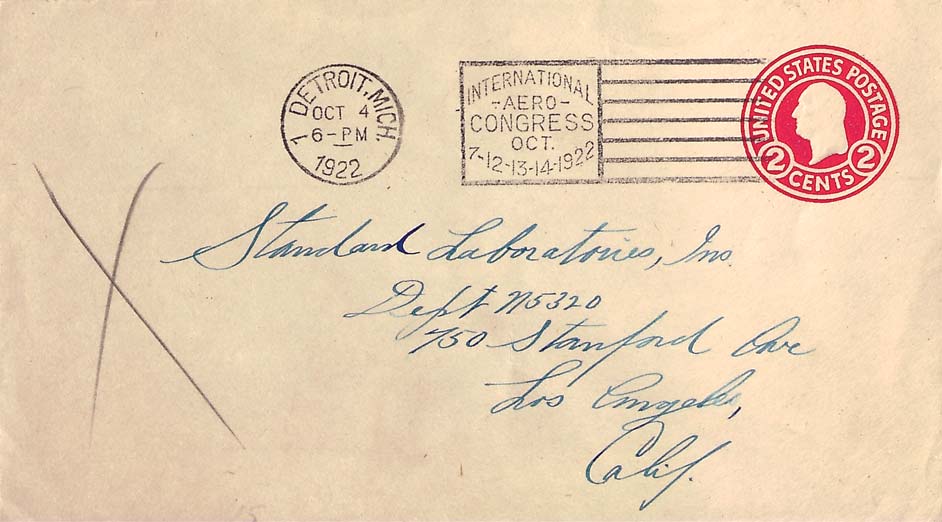 1 DETROIT, MICH.
OCT 4
6-PM
1922
INTERNATIONAL
-AERO-
CONGRESS
OCT.
7-12-13-14-1922
UNITED STATES POSTAGE
2 CENTS 2
Standard Laboratories, Inc.
Dept N5320
750 Stanford Ave
Los Angeles,
Calif.